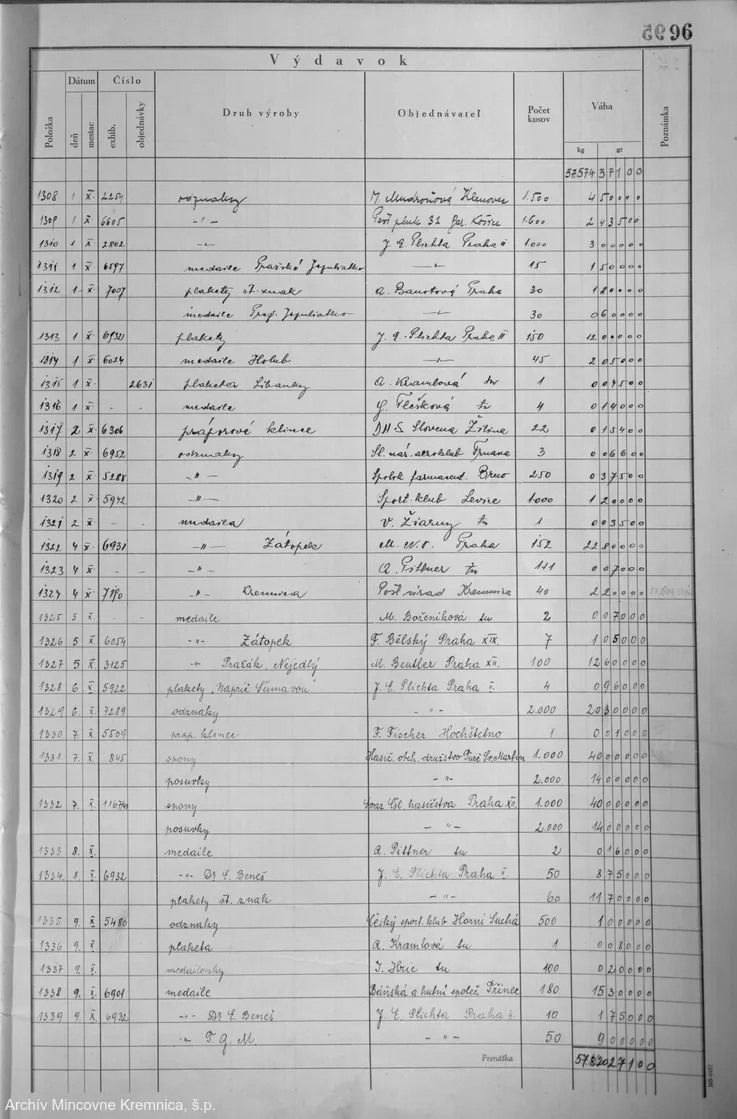 95 96
Výdavok
Položka Dátum Číslo Druh výroby Objednávateľ Počet kusov Váha Poznámka
deň mesiac exhib. objednávky kg gr
57.574 3 7 1 0 0
1308 1 X. 2251 odznaky M. Mudroňová Klenovec 1.500 4 5 0 0 0 0
1309 1 X 6605 -"- Peší pluk 32 Košice 1.600 2 4 3 5 0 0
1310 1 X 2802 -"- J. E. Plichta Praha II 1.000 3 0 0 0 0 0
1311 1 X. 6597 medaile Pražské -"- 15 1 5 0 0 0
1312 1 X. 7007 plakety št. znak A. Praha 30 1 8 0 0 0
medaile 30 0 6 0 0 0 0
1313 1 X 6931 plakety J. E. Plichta Praha II 150 12 0 0 0 0
1314 1 X. 6024 medaile Holub -"- 45 2 0 5 0 0 0
1315 1 X. 2631 plaketa A. Kramlová tu 1 0 0 4 5 0 0
1316 1 X. - - medaile Flešková tu 4 0 1 4 0 0 0
1317 2 X. 6306 práporové klince Slovena Žilina 22 0 1 5 4 0 0
1318 2 X. 6952 odznaky Sl. nár. aeroklub Trnava 3 0 0 6 6 0 0
1319 2 X. 5288 -"- Spolok farmaceut. Brno 250 0 3 7 5 0 0
1320 2 X. 5942 -"- Sport. klub Levice 1000 1 2 0 0 0 0
1321 2 X. - - medaila V. Žiarny tu 1 0 0 3 5 0 0
1322 4 X. 6931 -"- Zátopek Praha 152 22 8 0 0 0 0
1323 4 X. - -"- A. Pittner tu 0 0 7 0 0 0
1324 4 X. 7180 -"- Kremnica Pošt. úrad Kremnica 40 2 2 0 0 0 0
1325 5 X. - medaile M. Boženíková tu 2 0 0 7 0 0 0
1326 5 X 6054 -"- Zátopek F. Bělský Praha XIX. 7 1 0 5 0 0 0
1327 5 X 3125 -"- Pražák, Nejedlý M. Beutler Praha XII. 100 12 6 0 0 0 0
1328 6 X. 5922 plakety "Napříč Šumavou" J. E. Plichta Praha 4 0 9 6 0 0 0
1329 6. X. 7289 odznaky -"- 2.000 20 3 0 0 0 0
1330 7. X 5509 prap. klince F. Fischer Hochštetno 1 0 0 1 0 0 0
1331 7. X. 845 spony Hasič. obch. družstvo Turč. Sv. Martin 1.000 40 0 0 0 0 0
posuvky -"- 2.000 14 0 0 0 0 0
1332 7. X. spony hasičstva Praha XII. 1.000 40 0 0 0 0 0
posuvky -"- 2.000 14 0 0 0 0 0
1333 8. X. medaile A. Pittner tu 2 0 1 6 0 0 0
1334. 8. X. 6932 -"- Dr E. Beneš J. E. Plichta Praha 50 8 7 5 0 0 0
plakety št. znak -"- 60 11 7 0 0 0 0
1335 9. X 5480 odznaky Český sport. klub Horní Suchá 500 1 0 0 0 0 0
1336 9. X. plaketa A. Kramlová tu 1 0 0 8 0 0 0
1337 9. X. medailonky tu 100 0 2 0 0 0 0
1338 9. X. 6901 medaile Báňská a hutní společ. Třinec 180 15 3 0 0 0 0
1339 9. X. 6932 -"- Dr E. Beneš J. E. Plichta Praha 10 1 7 5 0 0 0
-"- T. G. M. -"- 50 9 0 0 0 0 0
Prenáška 57820 2 7 1 0 0
Archív Mincovne Kremnica, š.p.